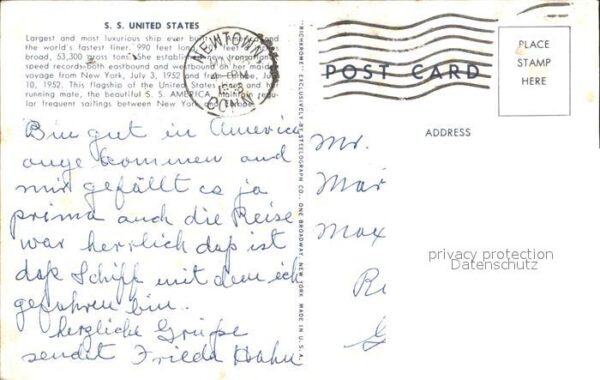 S. S. UNITED STATES
Largest and most luxurious ship ever built in America and
the world's fastest liner. 990 feet long,
broad, 53,300 gross tons. She established new transatlantic
speed records both eastbound and westbound on her maiden
voyage from New York, July 3, 1952 and from July
10, 1952. This flagship of the United States and her
running mate, the beautiful S. S. AMERICA, maintain regu-
lar frequent sailings between New York and
NEWTOWN
4 - PM
1958
CONN.
Bin gut in America
angekommen und
mir gefällt es ja
prima auch die Reise
war herrlich daß ist
daß Schiff mit dem ich
gefahren bin.
herzliche Grüße
sendet Frieda
EXCLUSIVELY BY STEELOGRAPH CO. ONE BROADWAY, NEW YORK MADE IN U.S.A.
POST CARD
PLACE
STAMP
HERE
ADDRESS
Mr.
Mar
Max
privacy protection
Datenschutz